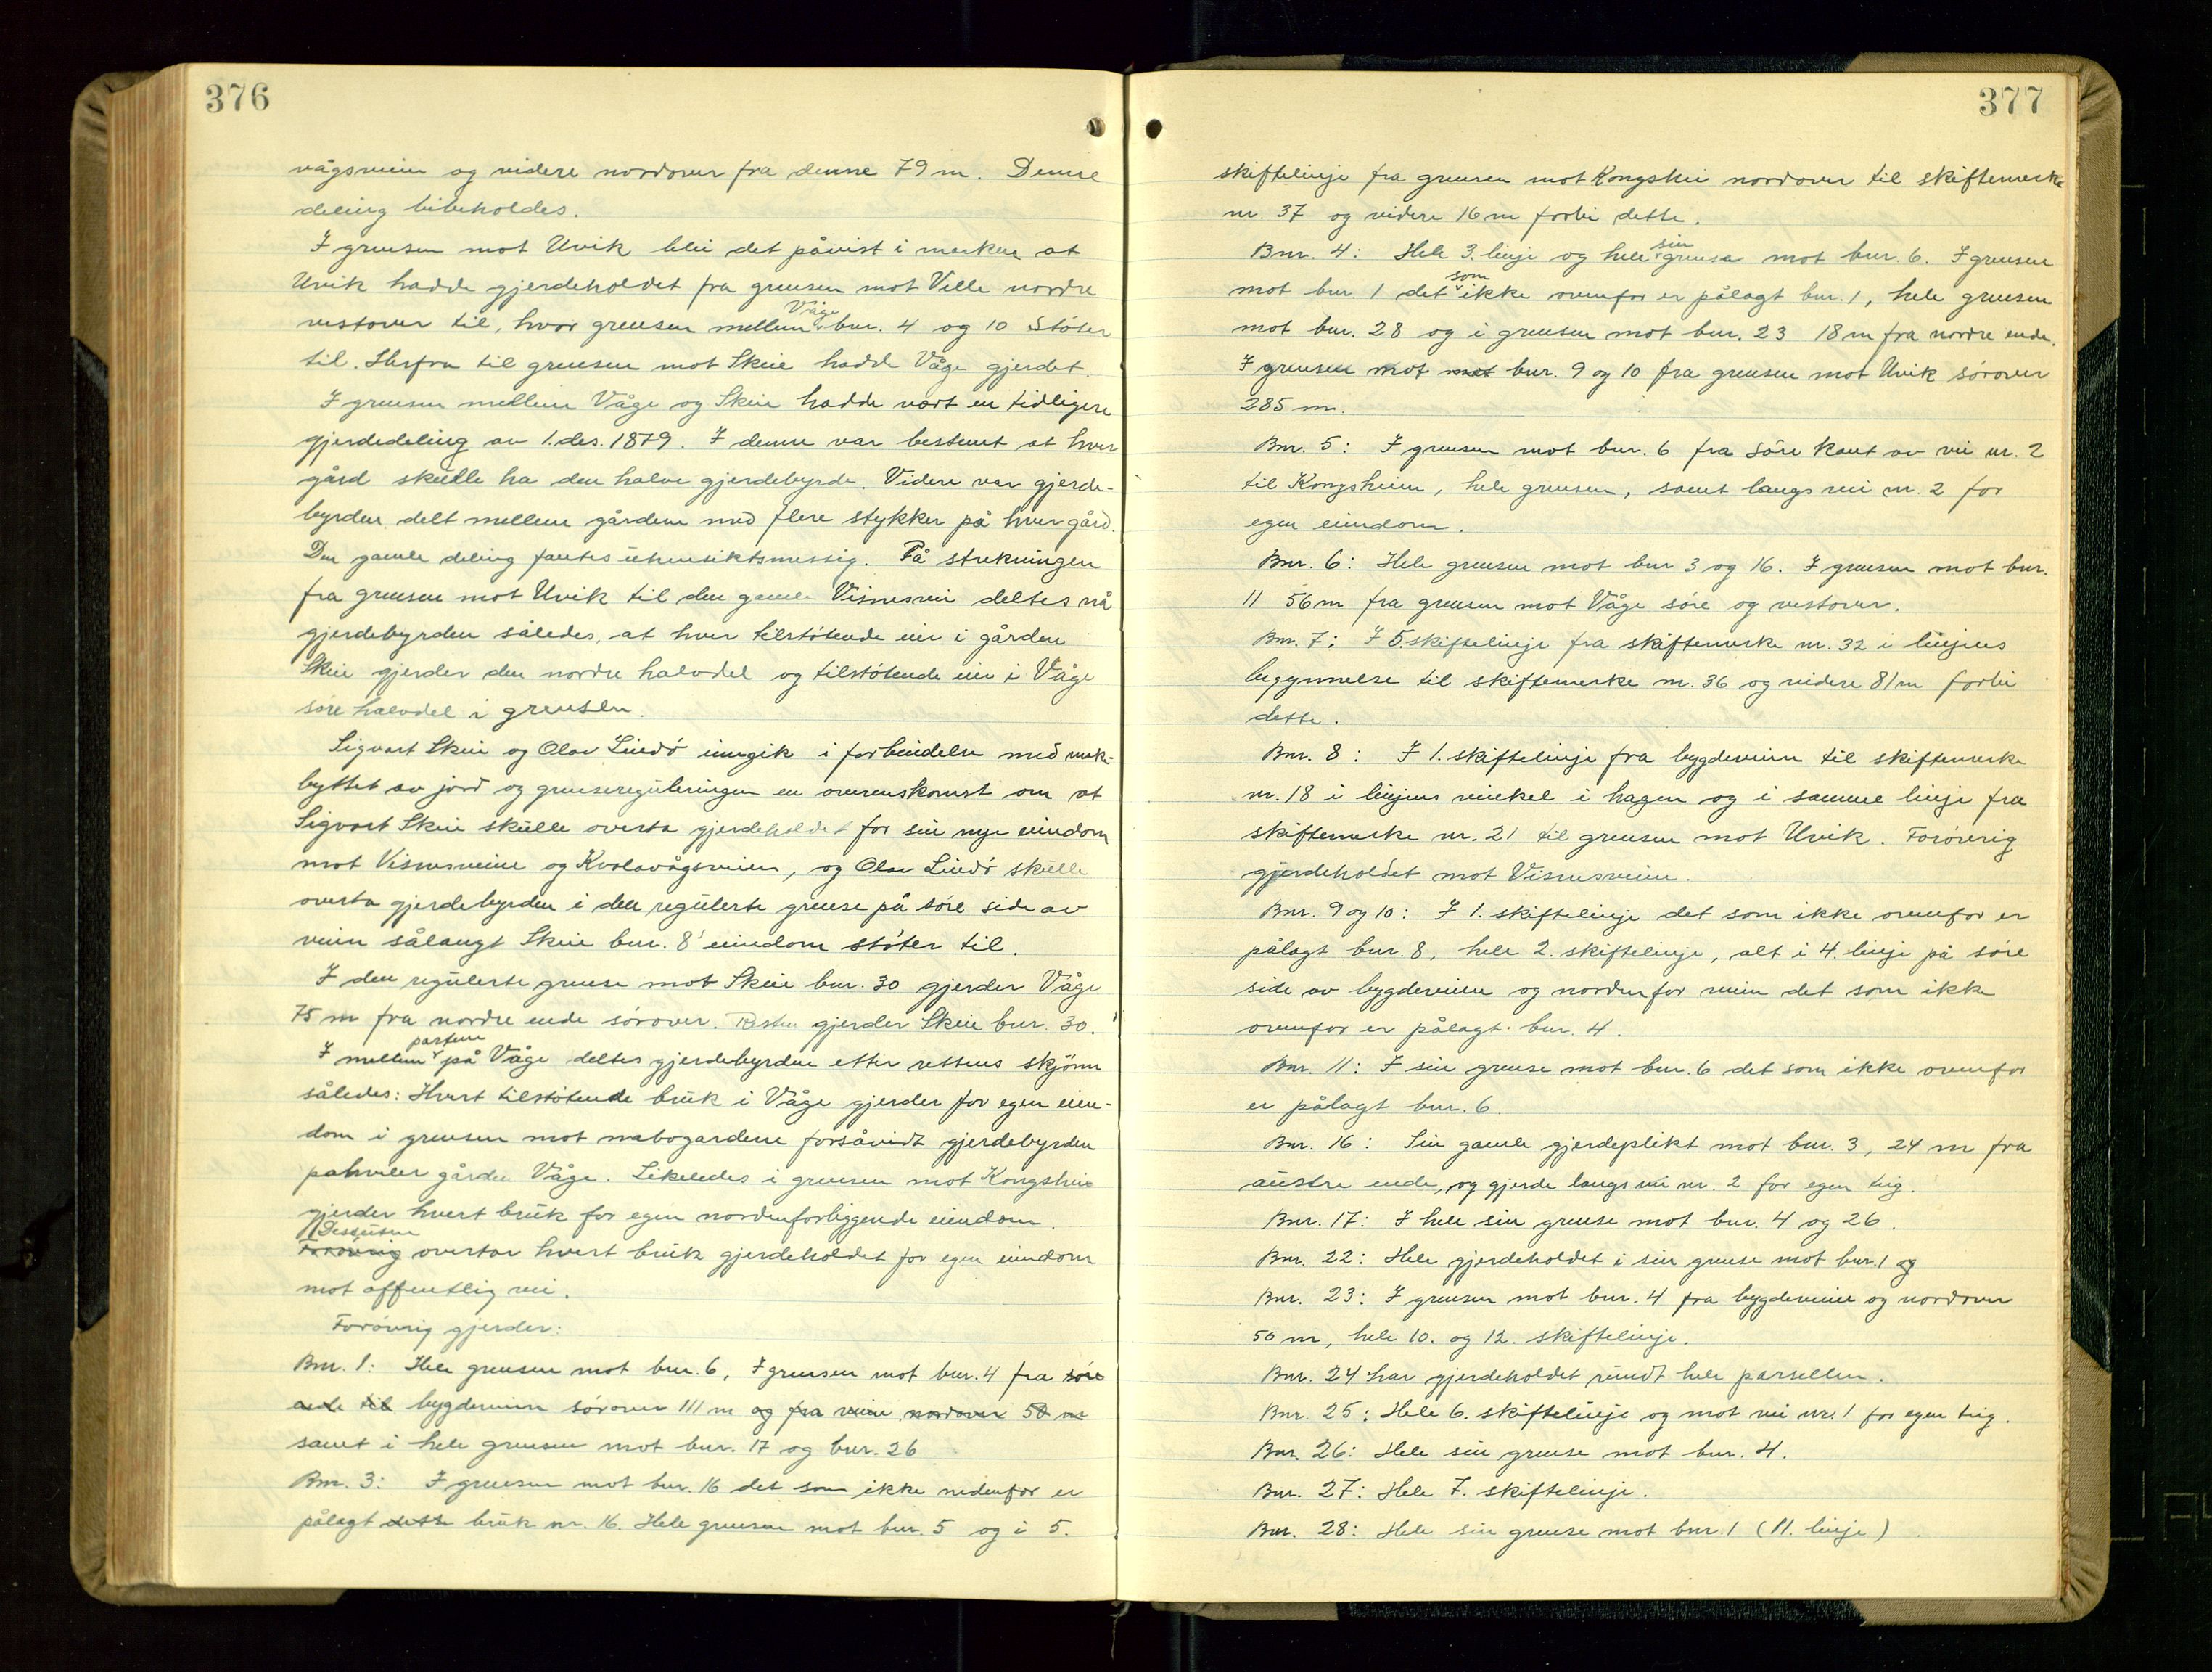 376
vågsveien og videre nordover fra denne 79 m. Denne
deling bibeholdes.
I grensen mot Unik blei det påvist i marken at
Unik hadde gjerdeholdet fra grensen mot Velle nordre
vestover til, hvor grensen mellem Våge bnr. 4 og 10 støter
til. Herfra til grensen mot Skeie hadde Våge gjerdet.
I grensen mellem Våge og Skeie hadde vært en tidligere
gjerdedeling av 1. des. 1879. I denne var bestemt at hver
gård skulle ha den halve gjerdebyrde. Videre var gjerde-
byrden delt mellem gårdene med flere stykker på hver gård.
Den gamle deling fantes uhensiktsmessig. På strekningen
fra grensen mot Unik til den gamle Visnesvei deltes nå
gjerdebyrden således, at hver tilstøtende eier i gården
Skeie gjerder den nordre halvdel og tilstøtende eier i Våge
søre halvdel i grensen.
Sigvart Skeie og Olav Lindø inngik i forbindelse med make-
byttet av jord og grensereguleringen en overenskomst om at
Sigvart Skeie skulle overta gjerdeholdet for sin nye eiendom
mot Visnesveien og Kvalavågsveien, og Olav Lindø skulle
overta gjerdebyrden i den regulerte grense på søre side av
veien sålangt Skeie bnr. 8' eiendom støter til.
I den regulerte grense mot Skeie bnr. 30 gjerder Våge
75 m fra nordre ende sørover. Resten gjerder Skeie bnr. 30.
I mellem partene på Våge deltes gjerdebyrdene etter rettens skjönn
således: Hvert tilstøtende bruk i Våge gjerder for egen eien-
dom i grensen mot nabogardene forsåvidt gjerdebyrden
påhviler gården Våge. Likeledes i grensen mot Kongshei
gjerder hvert bruk for egen nordenforliggende eiendom.
Dessuten
Forøvrig overtar hvert bruk gjerdeholdet for egen eiendom
mot offentlig vei.
Forøvrig gjerder:
Bnr. 1: Hele grensen mot bnr. 6, I grensen mot bnr. 4 fra søre
ende til bygdeveien sørover 111 m og fra veien nordover 50 m
samt i hele grensen mot bnr. 17 og bnr. 26
Bnr. 3: I grensen mot bnr. 16 det som ikke nedenfor er
pålagt dette bruk nr. 16. Hele grensen mot bnr. 5 og i 5.
377
skiftelinje fra grensen mot Kongshei nordover til skiftemerke
nr. 37 og videre 16 m forbi dette.
Bnr. 4: Hele 3. linje og hele sin grense mot bnr. 6. I grensen
mot bnr. 1 det som ikke ovenfor er pålagt bnr. 1, hele grensen
mot bnr. 28 og i grensen mot bnr. 23 18 m fra nordre ende.
I grensen mot mot bnr. 9 og 10 fra grensen mot Unik sørover
285 m.
Bnr. 5: I grensen mot bnr. 6 fra søre kant av vei nr. 2
til Kongsheien, hele grensen, samt langs vei nr. 2 for
egen eiendom.
Bnr. 6: Hele grensen mot bnr 3 og 16. I grensen mot bnr.
11 56 m fra grensen mot Våge søre og vestover.
Bnr. 7: I 5. skiftelinje fra skiftemerke nr. 32 i linjens
begynnelse til skiftemerke nr. 36 og videre 81 m forbi
dette.
Bnr. 8: I 1. skiftelinje fra bygdeveien til skiftemerke
nr. 18 i linjens vinkel i hagen og i samme linje fra
skiftemerke nr. 21 til grensen mot Unik. Forøvrig
gjerdeholdet mot Visnesveien.
Bnr. 9 og 10: I 1. skiftelinje det som ikke ovenfor er
pålagt bnr. 8, hele 2. skiftelinje, alt i 4. linje på søre
side av bygdeveien og nordenfor veien det som ikke
ovenfor er pålagt bnr. 4.
Bnr. 11: I sin grense mot bnr. 6 det som ikke ovenfor
er pålagt bnr. 6.
Bnr. 16: Sin gamle gjerdeplikt mot bnr. 3, 24 m fra
austre ende, og gjerde langs vei nr. 2 for egen teig.
Bnr. 17: I hele sin grense mot bnr. 4 og 26.
Bnr. 22: Hele gjerdeholdet i sin grense mot bnr. 1 og
Bnr. 23: I grensen mot bnr. 4 fra bygdeveien og nordover
50 m, hele 10. og 12. skiftelinje.
Bnr. 24 har gjerdeholdet rundt hele parsellen.
Bnr. 25: Hele 6. skiftelinje og mot vei nr. 1 for egen teig.
Bnr. 26: Hele sin grense mot bnr. 4.
Bnr. 27: Hele 7. skiftelinje.
Bnr. 28: Hele sin grense mot bnr. 1 (11. linje)